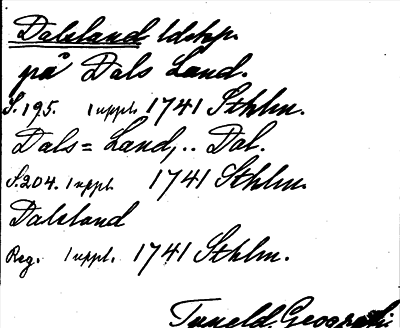 Dalsland ldskp.
på Dals Land.
S. 195. 1 uppl. 1741 Sthlm.
Dals= Land, .. Dal.
S. 204. 1 uppl. 1741 Sthlm.
Dalsland
Reg. 1 uppl. 1741 Sthlm.
Tuneld. Geografi.